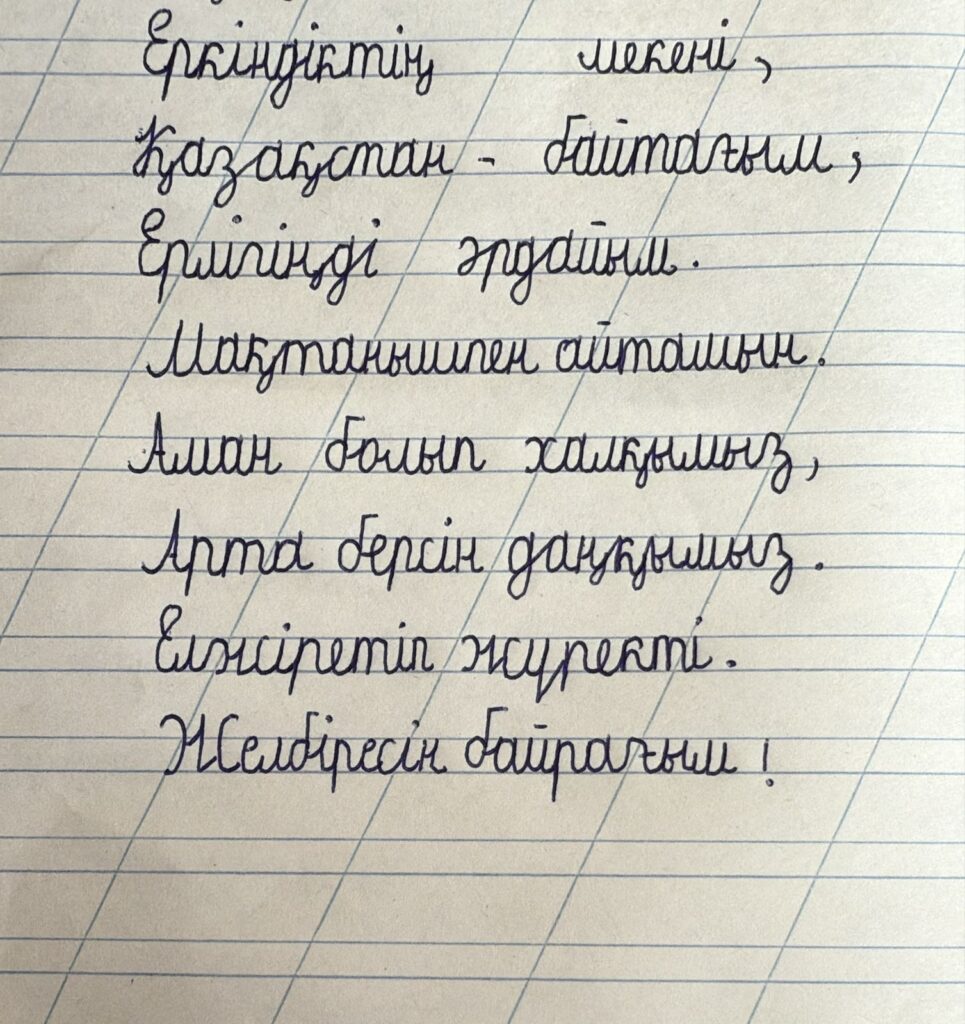 Еркіндіктің мекені,
Қазақстан - байтағым,
Ерлігіңді әрдайым.
Мақтанышпен айтамын.
Аман болып халқымыз,
Арта берсін даңқымыз.
Елжіретіп жүректі.
Желбіресін байрағым!